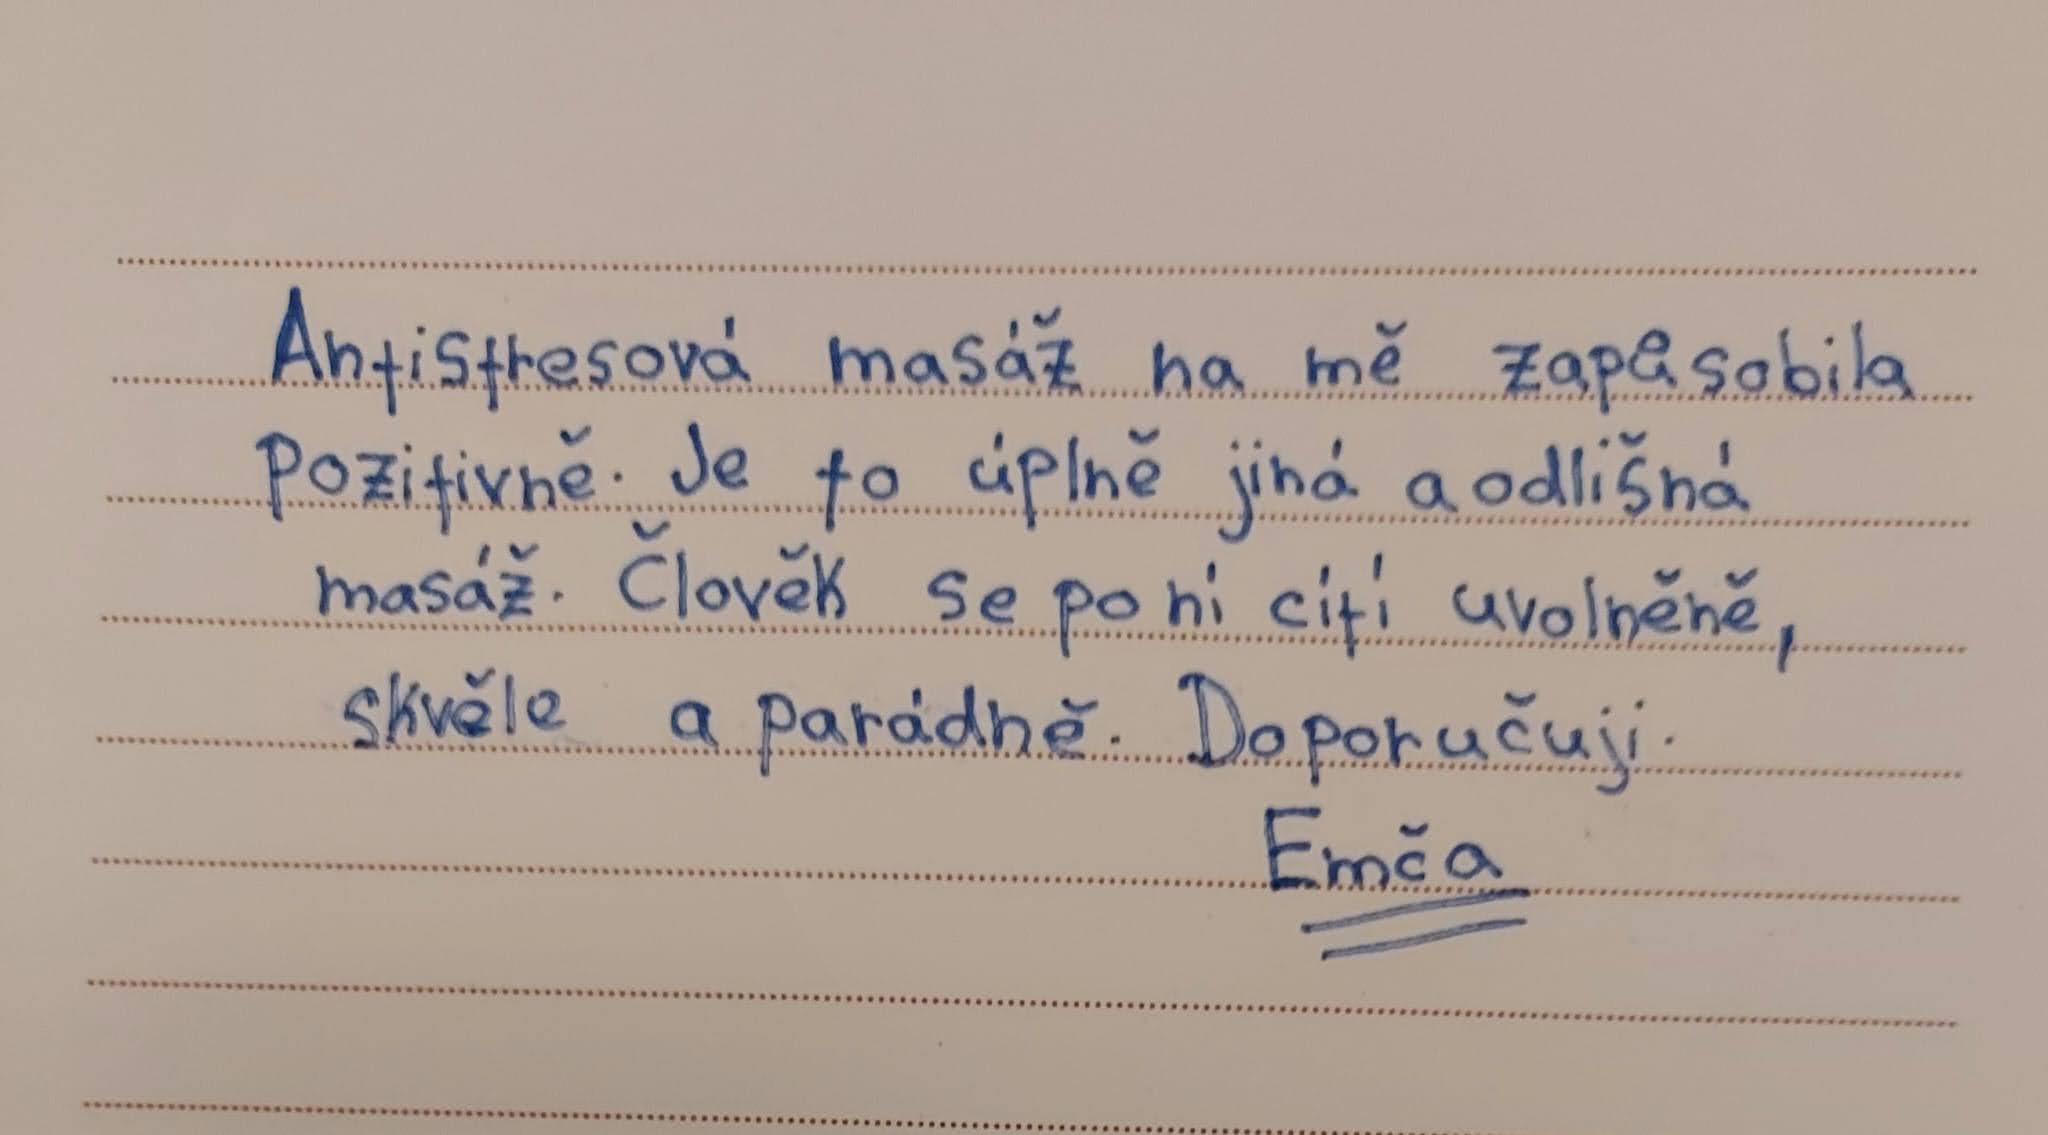 Antistresová masáž na mě zapůsobila
pozitivně. Je to úplně jiná a odlišná
masáž. Člověk se po ní cítí uvolněně,
skvěle a parádně. Doporučuji.
Emča